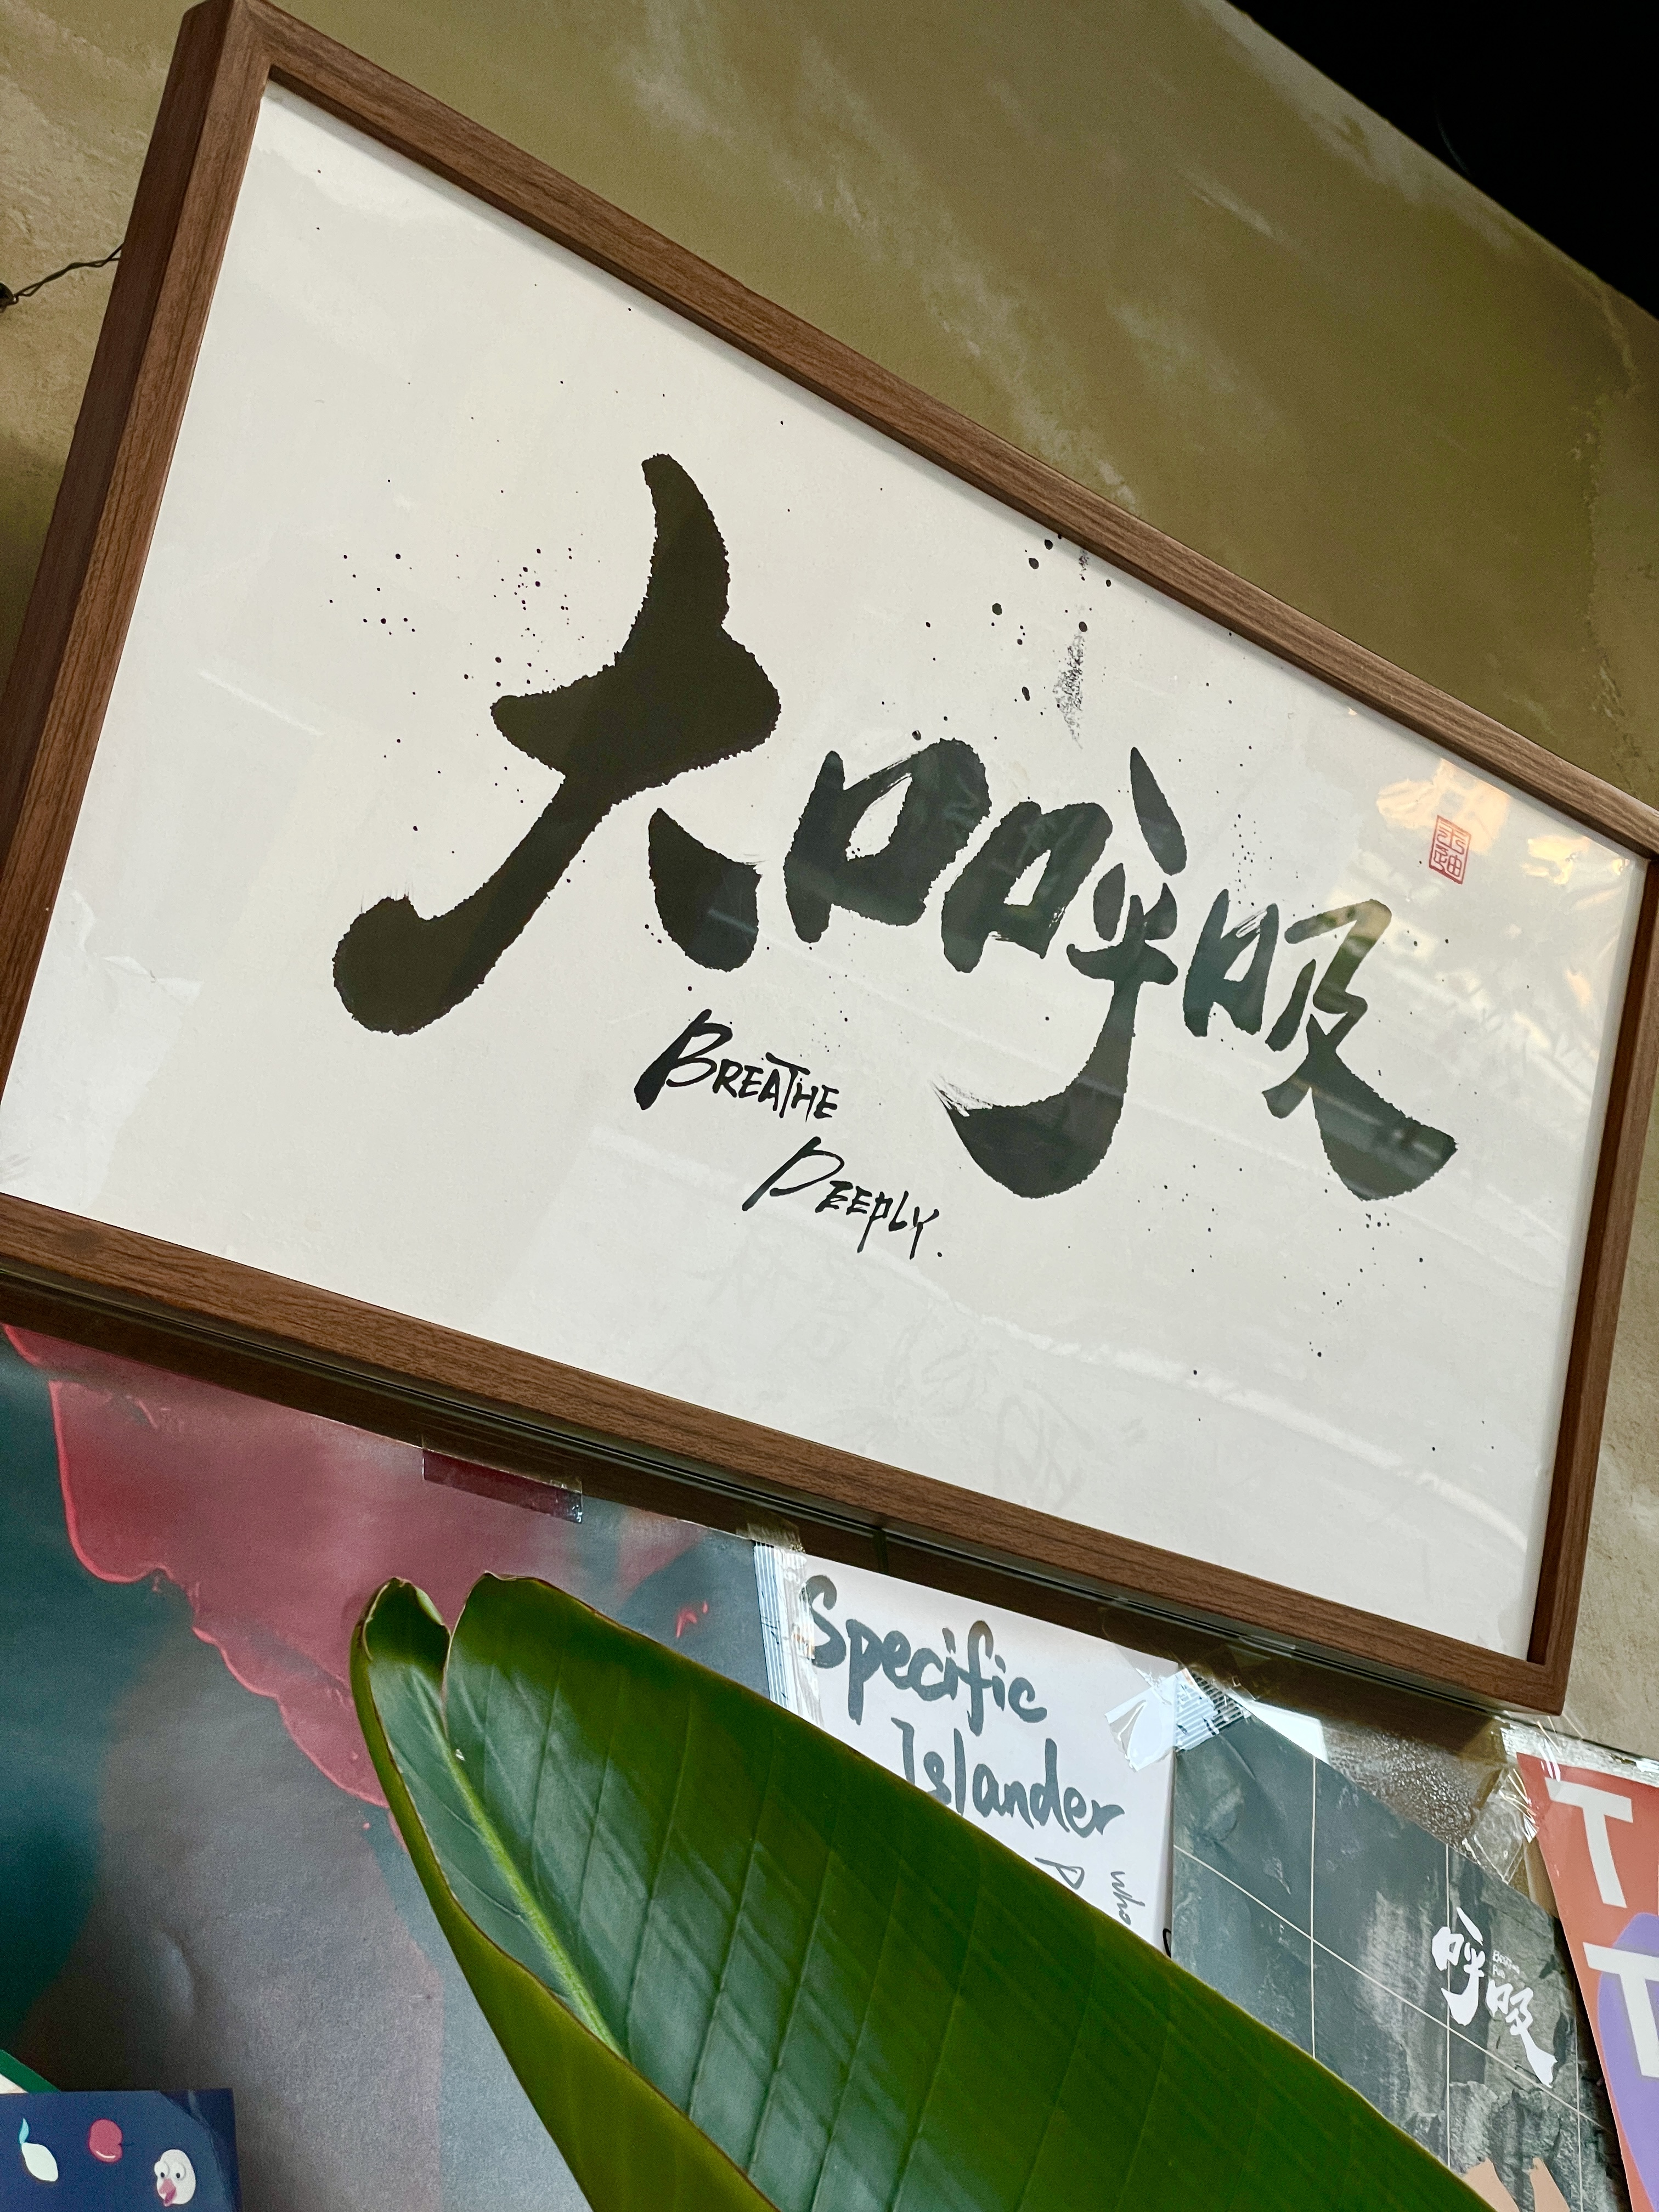 大口呼吸
BREATHE
DEEPLY.
Specific
Islander
who
P
呼吸
T
T